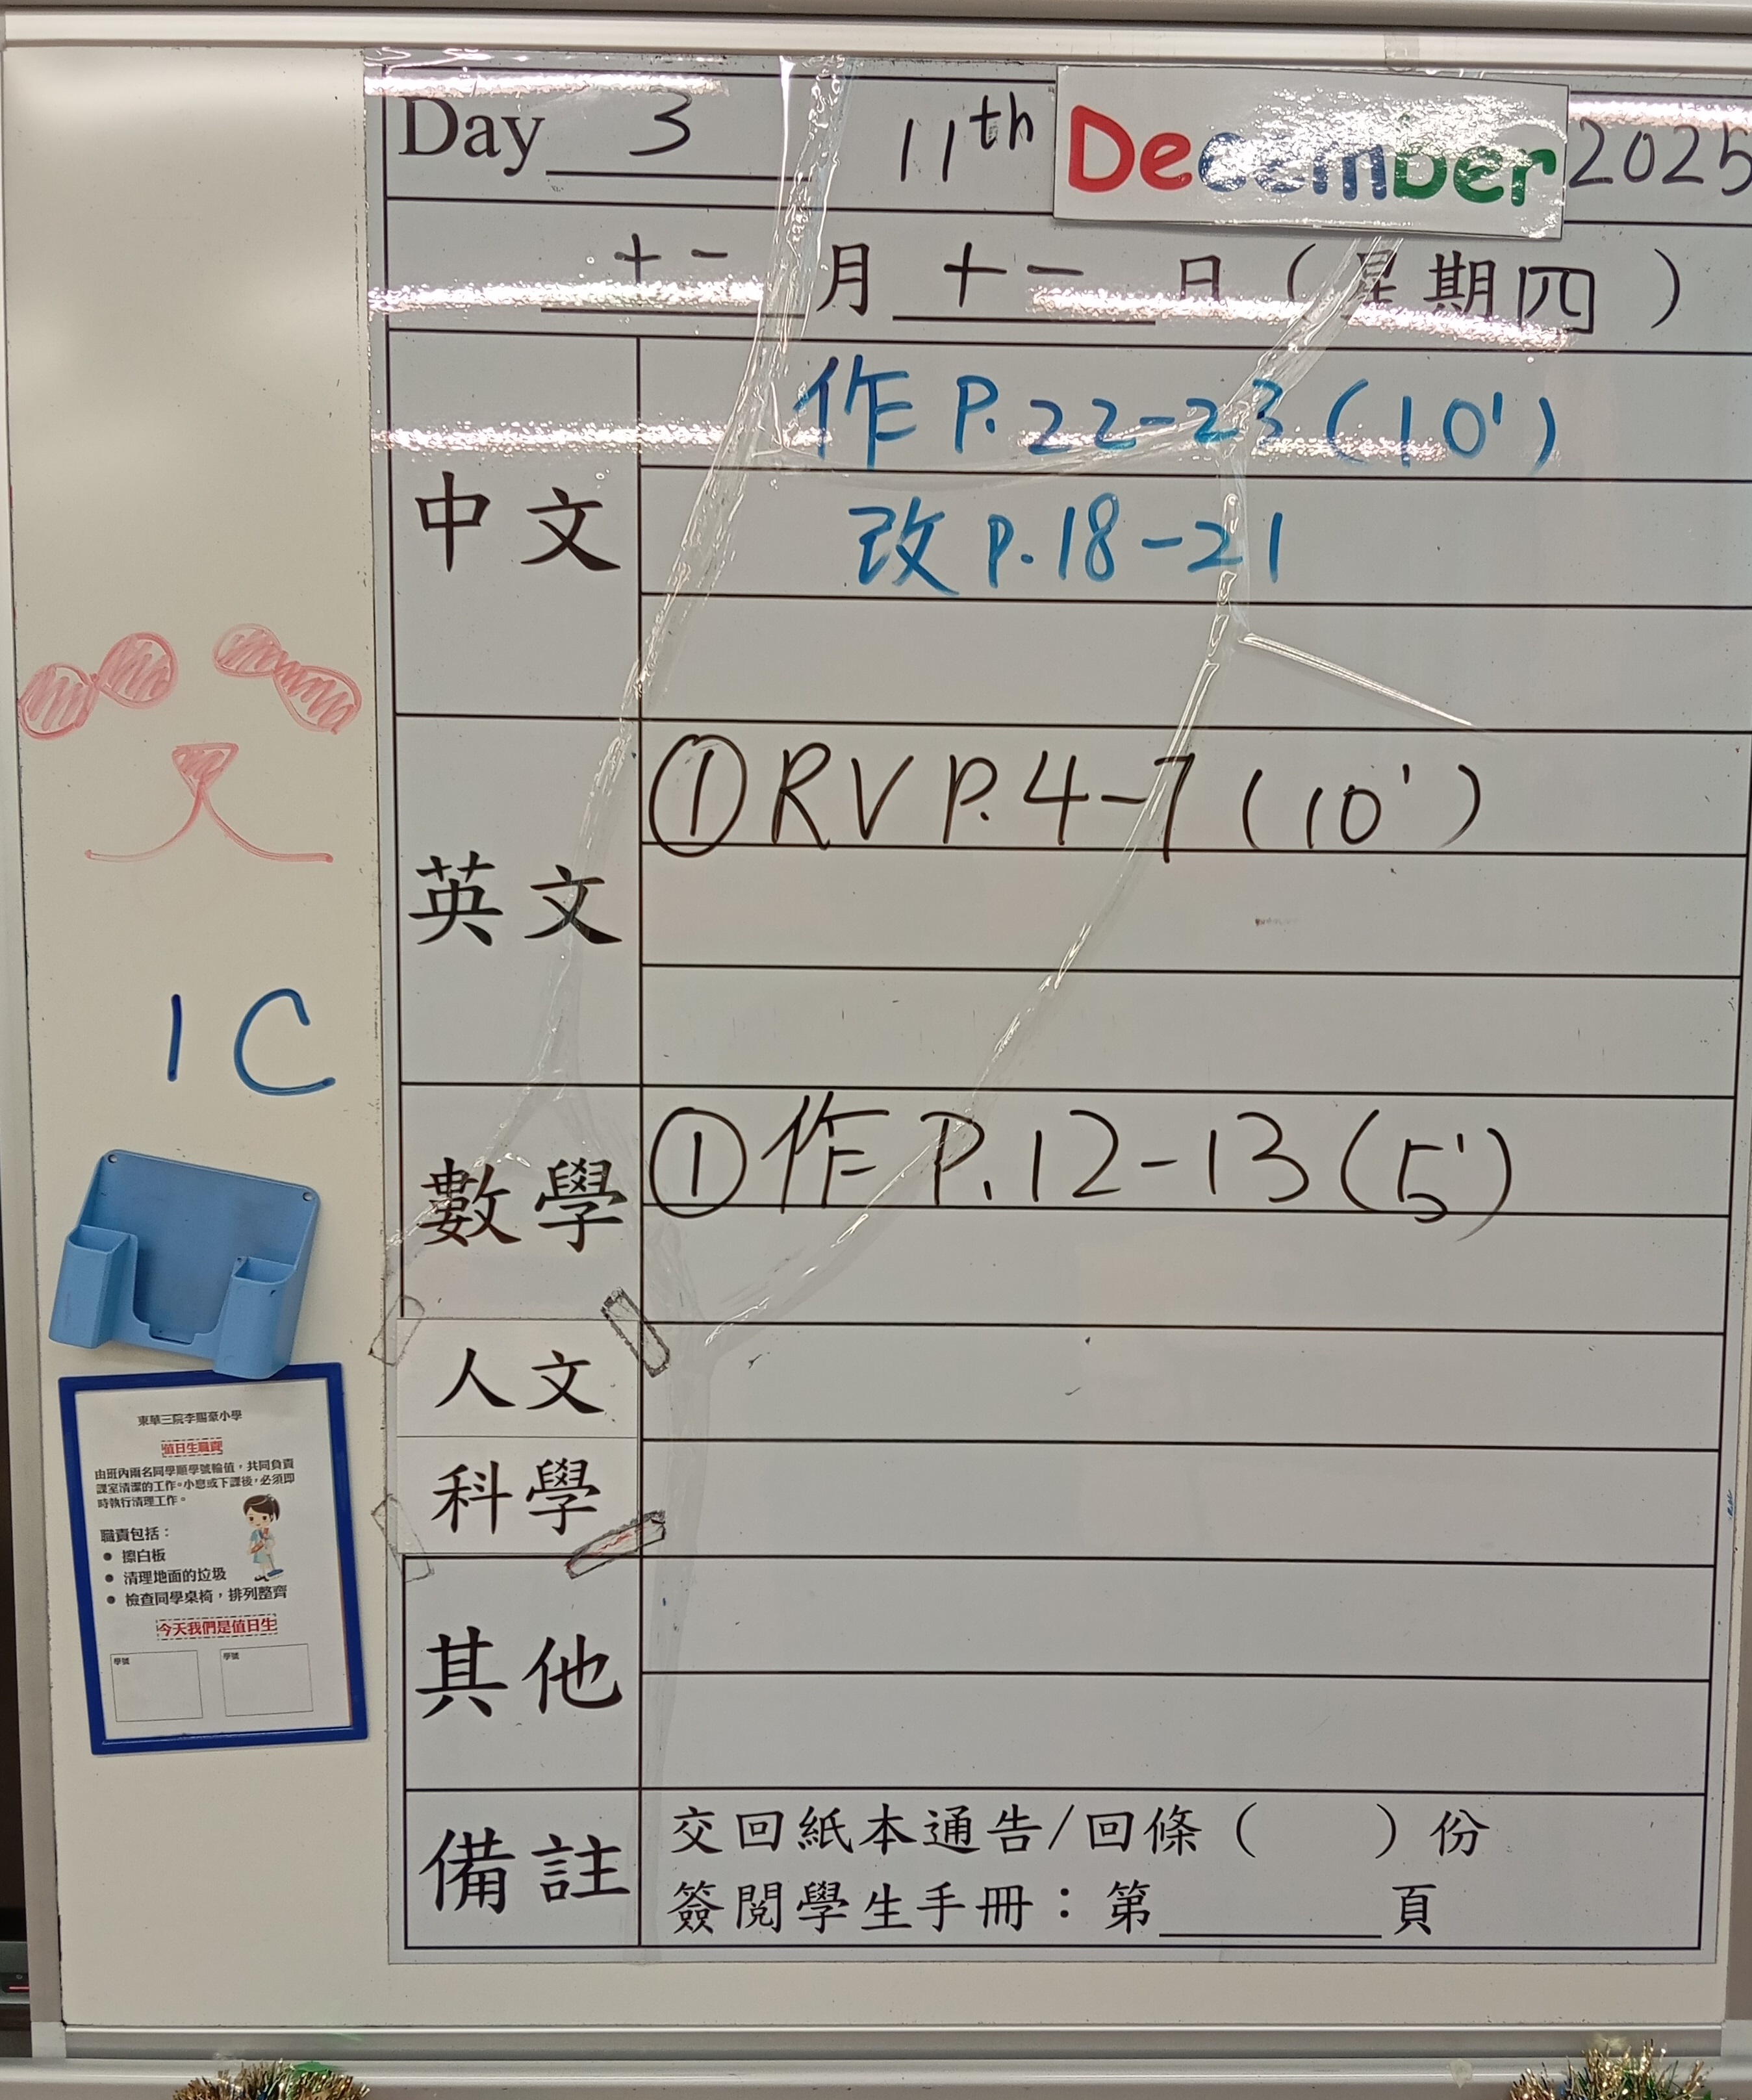 Day 3 11th December 2025
十二月十一日(星期四)
中文
作 P.22-23(10')
改 P.18-21
英文
① RV P.4-7 (10')
數學
① 作 P.12-13(5')
人文
科學
其他
備註
交回紙本通告/回條( )份
簽閱學生手冊:第______頁
1C
東華三院李賜豪小學
值日生職責
由班內兩名同學順學號輪值,共同負責
課室清潔的工作。小息或下課後,必須即
時執行清理工作。
職責包括:
● 擦白板
● 清理地面的垃圾
● 檢查同學桌椅,排列整齊
今天我們是值日生
學號 學號